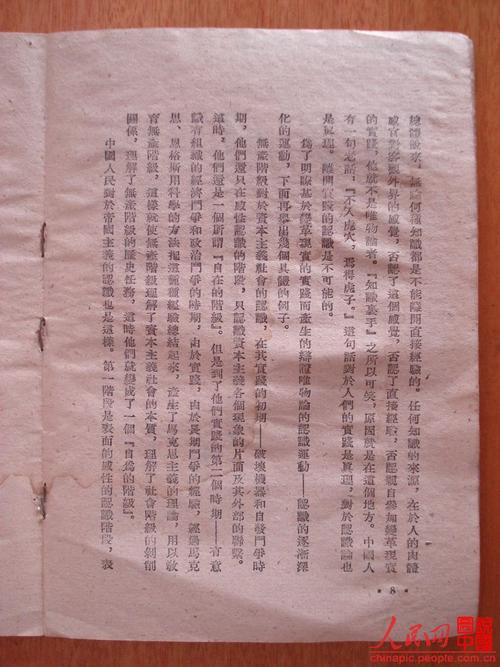 總體說來，無論何種知識都是不能離開直接經驗的。任何知識的來源，在於人的肉體
感官對客觀外界的感覺，否認了這個感覺，否認了直接經驗，否認親自參加變革現實
的實踐，他就不是唯物論者。『知識裏手』之所以可笑，原因就是在這個地方。中國人
有一句老話：『不入虎穴，焉得虎子。』這句話對於人們的實踐是真理，對於認識論也
是真理。離開實踐的認識是不可能的。
爲了明瞭基於變革現實的實踐而產生的辯證唯物論的認識運動——認識的逐漸深
化的運動，下面再舉出幾個具體的例子。
無產階級對於資本主義社會的認識，在其實踐的初期——破壞機器和自發鬥爭時
期，他們還只在感性認識的階段，只認識資本主義各個現象的片面及其外部的聯繫。
這時，他們還是一個所謂『自在的階級』。但是到了他們實踐的第二個時期——有意
識有組織的經濟鬥爭和政治鬥爭的時期，由於實踐，由於長期鬥爭的經驗，經過馬克
思、恩格斯用科學的方法把這種種經驗總結起來，產生了馬克思主義的理論，用以教
育無產階級，這樣就使無產階級理解了資本主義社會的本質，理解了社會階級的剝削
關係，理解了無產階級的歷史任務，這時他們就變成了一個『自爲的階級』。
中國人民對於帝國主義的認識也是這樣。第一階段是表面的感性的認識階段，表
• 8 •
人民网
chinapic.people.com.cn